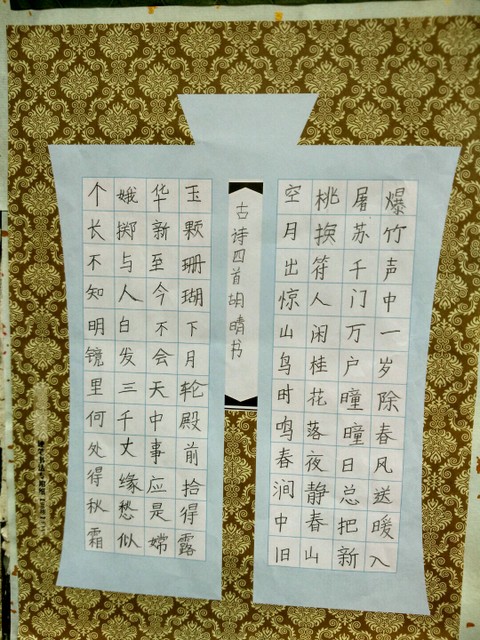 爆竹声中一岁除春风送暖入
屠苏千门万户瞳瞳日总把新
桃换符人闲桂花落夜静春山
空月出惊山鸟时鸣春涧中旧
古诗四首胡晴书
玉颗珊瑚下月轮殿前拾得露
华新至今不会天中事应是嫦
娥掷与人白发三千丈缘愁似
个长不知明镜里何处得秋霜